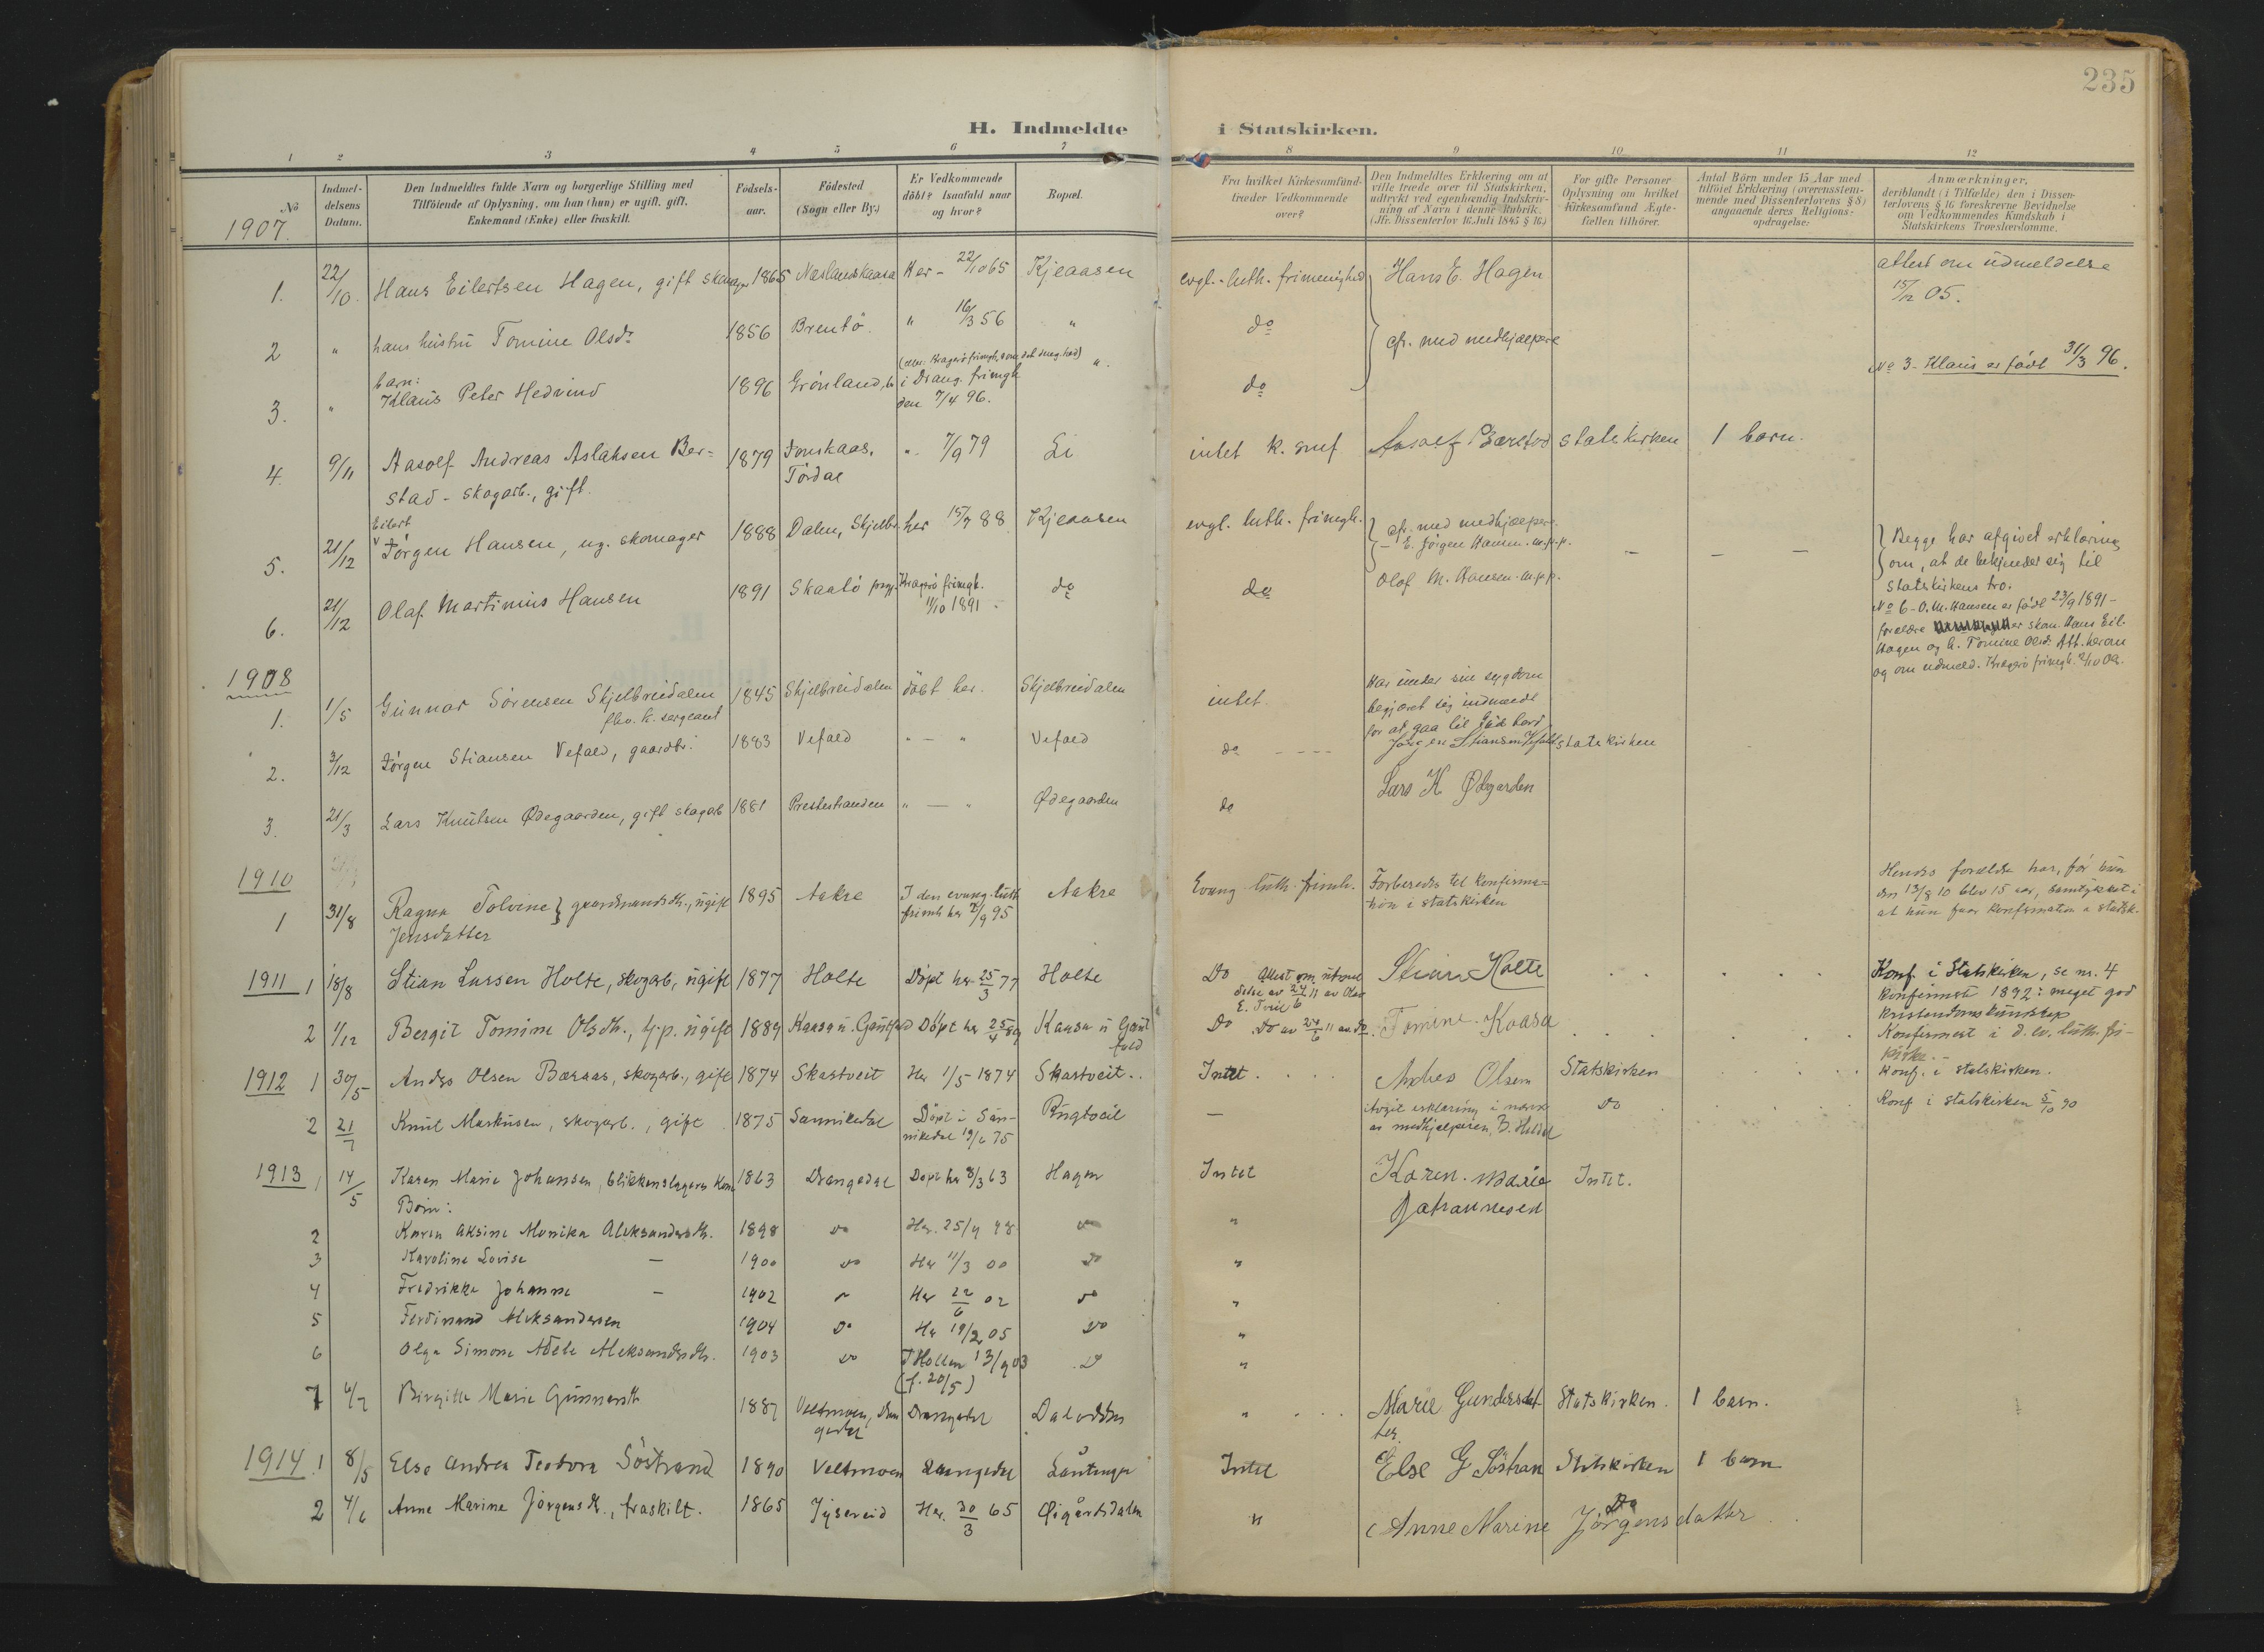 235
H. Indmeldte i Statskirken.
1 2 3 4 5 6 7 8 9 10 11 12
No
Indmel-
delsens
Datum.
Den Indmeldtes fulde Navn og borgerlige Stilling med
Tilföiende af Oplysning, om han (hun) er ugift, gift,
Enkemand (Enke) eller fraskilt.
Födsels-
aar.
Födested
(Sogn eller By.)
Er Vedkommende
döbt? Isaafald naar
og hvor?
Bopæl.
Fra hvilket Kirkesamfund
træder Vedkommende
over?
Den Indmeldtes Erklæring om at
ville træde over til Statskirken,
udtrykt ved egenhændig Indskriv-
ning af Navn i denne Rubrik.
(Jfr. Dissenterlov 16 Juli 1845 § 16.)
For gifte Personer
Oplysning om hvilket
Kirkesamfund Ægte-
fællen tilhörer.
Antal Börn under 15 Aar med
tilföiet Erklæring (overensstem-
mende med Dissenterlovens § 8)
angaaende deres Religions-
opdragelse:
Anmærkninger,
deriblandt (i Tilfælde) den i Dissen-
terlovens § 16 foreskrevne Bevidnelse
om Vedkommendes Kundskab i
Statskirkens Troeslærdomme.
1907.
1. 22/10. Hans Eilertsen Hagen, gift 1865 Næslandskaasa Her - 22/10 65 Kjeaasen evgl.-luth. frimenighed Hans E. Hagen attest om udmeldelse
15/12 05.
2 " hans hustru Tomine Olsdr 1856 Brentö. " 16/3 56 " do cfr. med medhjælpere
3. " barn:
Klaus Peter Hedvind 1896 Grönland, i Drang. frimgh
den 7/4 96. ". do No 3 - Klaus er födt 31/3 96.
4. 9/11 Aasolf Andreas Aslaksen Ber-
stad - skogarb., gift. 1879 Tonskaas,
Tördal ". 7/9 79 Li intet k. smf statskirken 1 barn.
5. 21/12 Eilert
Jörgen Hansen, ug. skomager 1888 Dalen, Skjelbr. her 15/7 88 Kjeaasen evgl. luth. frimgh. cfr. med medhjælpere.
- E. Jörgen Hansen. m.p.p. - - - Begge har afgivet erklæring
om, at de bekjender sig til
statskirkens tro.
6. 21/12 Olaf Martinius Hansen 1891 Skaatö Kragerö frimgh.
11/10 1891 - do do Olof M. Hansen. m.p.p. No 6 - O. M. Hansen er födt 23/9 1891 -
forældre er skom. Hans Eil.
Hagen og h. Tomine Olsdr. Att. herom
og om udmeld. Kragerö frimgh.
1908
1. 1/5 Gunnar Sörensen Skjelbreidalen
fhv. k. sergeant 1845 Skjelbreidalen döbt her. Skjelbreidalen intet. Har under sin sygdom
begjæret sig indmeldt
for at gaa til Guds bord
2. 3/12 Jörgen Stiansen Vefald, gaardbr. 1883 Vefald " - " Vefald do - - - - Jörgen Stiansen Vefald statskirken
3. 21/3 Lars Knutsen Ødegaarden, gift skogarb 1881 Prestestranden " - " Ødegaarden do Lars K Ødegarden
1910
1 31/8 Ragna Tolvine
Jensdatter } gaardmandsdtr., ugift 1895 Aakre I den evang.-luth
frimh her 2/9 95 Aakre Evang luth. frimh. Forberedes til konfirma-
tion i statskirken Hendes forældre har, før hun
den 13/8 10 blev 15 aar, samtykket i
at hun faar konfirmation i statsk.
1911 1 18/8 Stian Larsen Holte, skogarb, ugift 1877 Holte Döpt her 25/3 77 Holte Do Attest om utmel
delse av 24/6 11 av Olav
E. Tveit Stian Holte Konf. i Statskirken, se nr. 4
konfirmert 1892: meget god
kristendomskundskap
2 1/12 Bergit Tomine Olsdtr., tj.p. ugift 1889 Kaasa u. Gautefald Döpt her 25/4 89 Kaasa u Gaut
fald Do Do av 24/6 11 av do. Tomine. Kaasa Konfirmert i d. ev. luth. fri-
kirke. -
1912 1 30/5 Andrs Olsen Baraas, skogarb., gift 1874 Skartveit Her 1/5 1874 Skartveit.. Intet. Andres Olsen Statskirken Konf. i statskirken.
2 21/7 Knut Markusen, skogarb., gift 1875 Sannikedal Döpt i San-
nikedal 19/6 75 - Avgit erklæring i nærv
av medhjelperen, B. Heldal Do Konf i statskirken 5/10 90
1913 1 14/5 Karen Marie Johansen, blikkenslagers kone 1863 Drangedal Döpt her 8/3 63 Hagen Intet Karen. Marie
Johannesen Intet.
Børn:
2 Karen Aksine Monika Aleksandersdtr. 1898 do Her. 25/9 98 do "
3 Karoline Lovise - 1900 do Her 11/3 00 do "
4 Fredrikke Johanne - 1902 Her 22/6 02 do "
5 Ferdinand Aleksandersen 1904 Do Her 19/2 05 Do "
6 Olga Simone Adele Aleksandersdtr. 1903 Do I Hollen 13/9 03
(f. 20/5) Do "
7 4/7 Birgitte Marie Gunnarsdtr 1887 Veltmoen, Dran
gedal Drangedal Daloddens " Marie Gundersdat
ter. Statskirken. 1 barn.
1914 1 8/5 Else Andrea Teodora Söstrand 1890 Veltmoen Drangedal Intet Else G Söstran Statskirken 1 barn
2 4/6 Anne Marine Jörgensdtr., fraskilt. 1865 Her. 30/3 65 Øigårdsdalen " Anne Marine Jörgensdatter Do